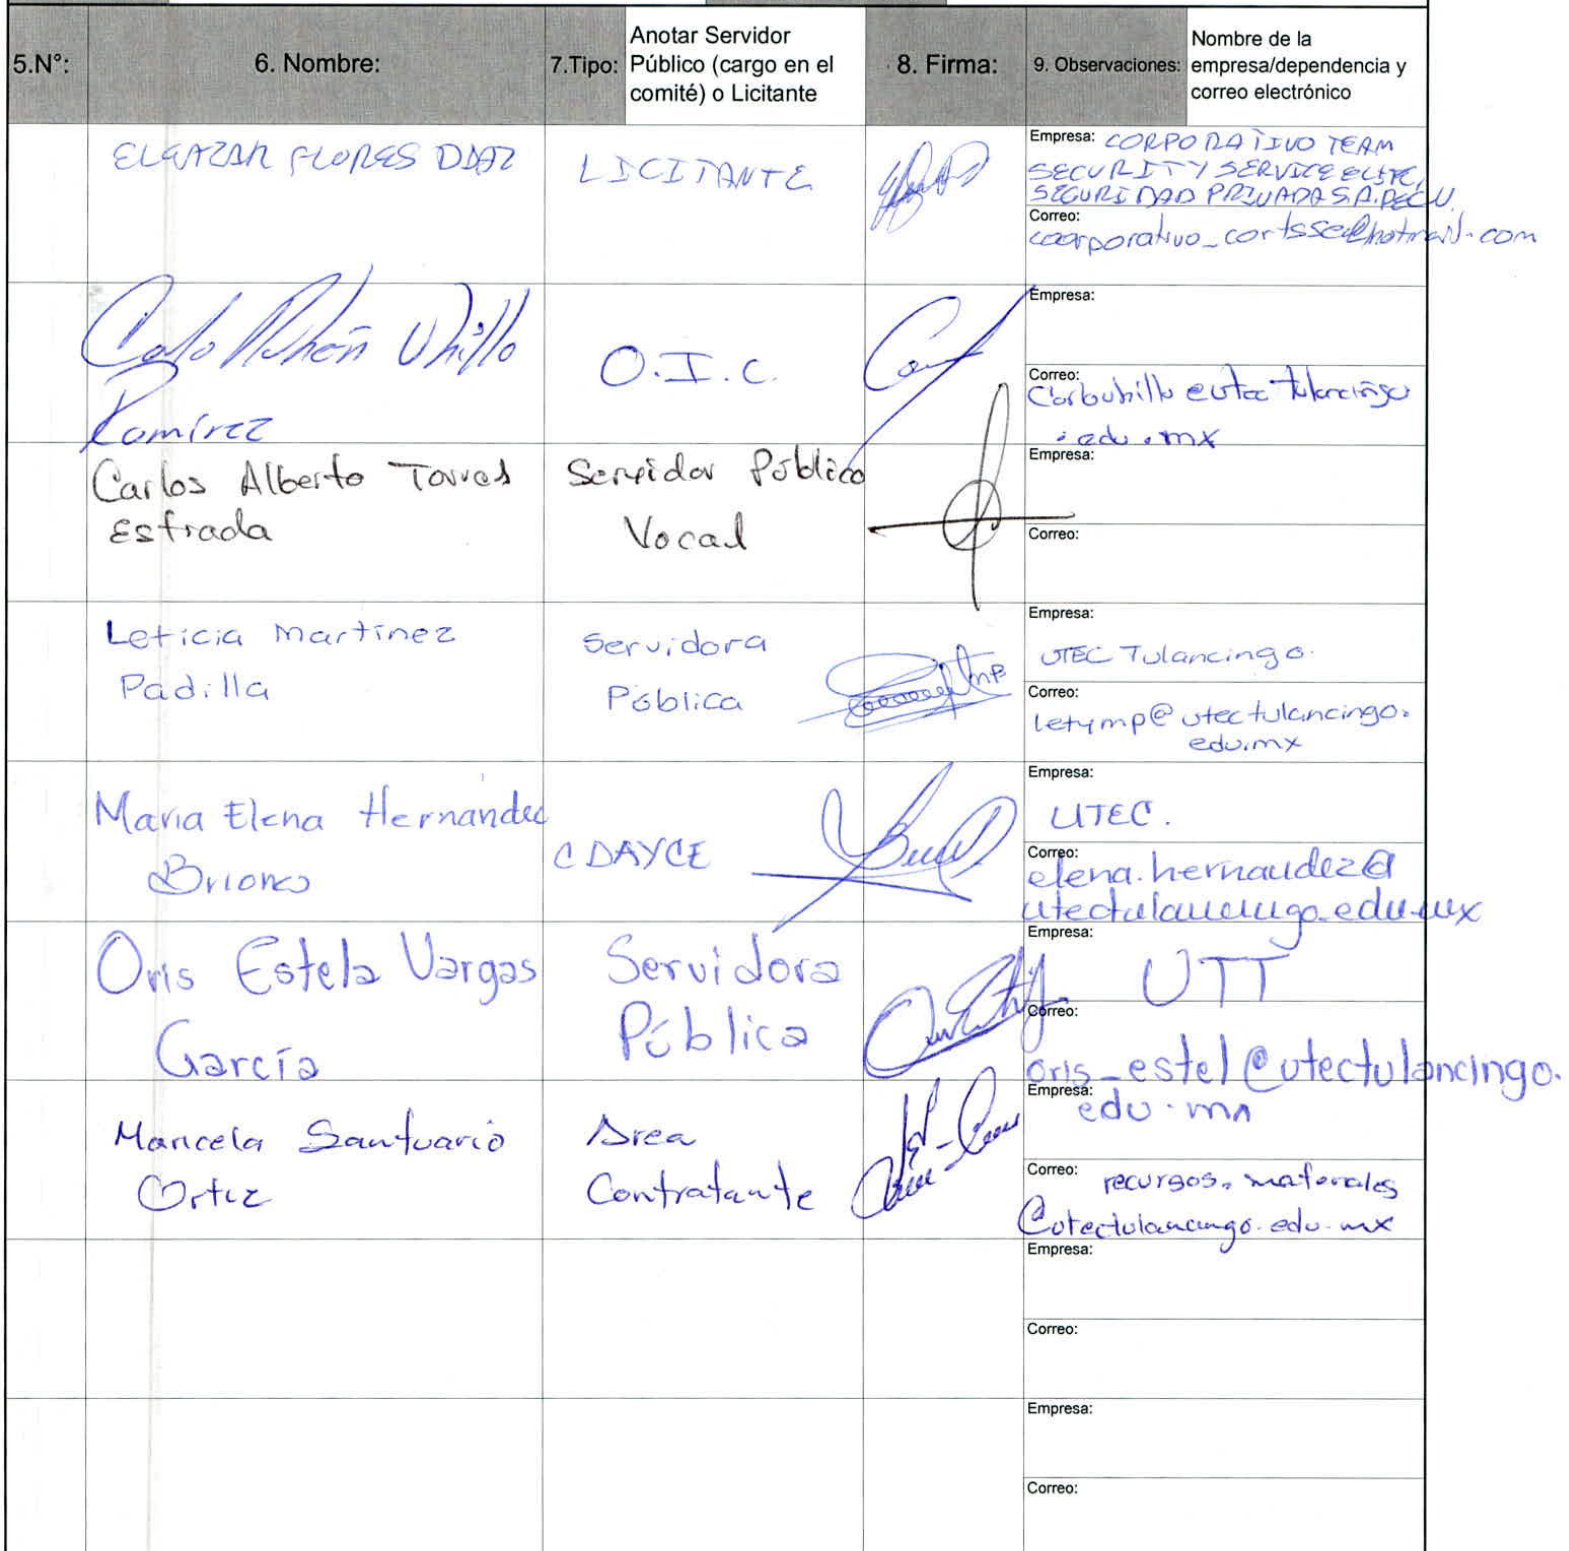 5.N°:
6. Nombre:
7.Tipo:
Anotar Servidor
Público (cargo en el
comité) o Licitante
8. Firma:
9. Observaciones:
Nombre de la
empresa/dependencia y
correo electrónico
ELEAZAR FLORES DIAZ
LICITANTE
Empresa: CORPORATIVO TEAM
SECURITY SERVICE ELITE,
SEGURIDAD PRIVADA S.A. DE C.V.
Correo:
Ramírez
O.I.C.
Empresa:
Correo:
.edu.mx
Carlos Alberto Torres
Estrada
Servidor Público
Vocal
Empresa:
Correo:
Leticia Martinez
Padilla
Servidora
Pública
Empresa:
UTEC Tulancingo.
Correo:
letymp@utectulancingo.
edu.mx
Maria Elena Hernandez
Briones
CDAYCE
Empresa:
UTEC.
Correo:
elena.hernandez@
utectulancingo.edu.mx
Oris Estela Vargas
García
Servidora
Pública
Empresa:
UTT
Correo:
oris_estel@utectulancingo.
edu.mx
Maricela Santuario
Ortiz
Area
Contratante
Empresa:
Correo: recursos.materiales
@utectulancingo.edu.mx
Empresa:
Correo:
Empresa:
Correo: